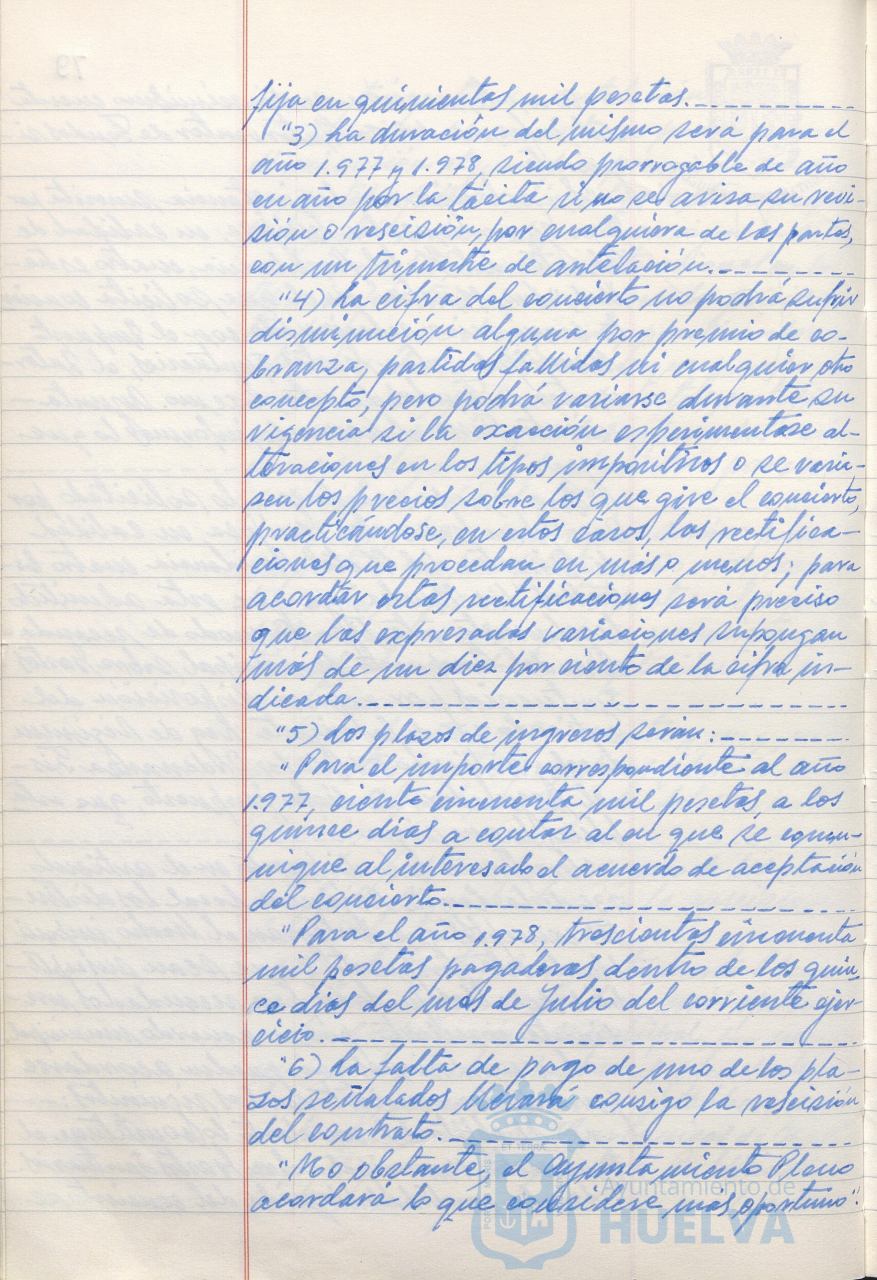 fija en quinientas mil pesetas.
"3) La duración del mismo será para el
año 1.977 y 1.978, siendo prorrogable de año
en año por la tácita si no se avisa su revi-
sión o rescisión, por cualquiera de las partes,
con un trimestre de antelación.
"4) La cifra del concierto no podrá sufrir
disminución alguna por premio de co-
branza, partidas fallidas ni cualquier otro
concepto, pero podrá variarse durante su
vigencia si la exacción experimentase al-
teraciones en los tipos impositivos o se varia-
sen los precios sobre los que gire el concierto,
practicándose, en estos casos, las rectifica-
ciones que procedan en más o menos; para
acordar estas rectificaciones será preciso
que las expresadas variaciones supongan
más de un diez por ciento de la cifra in-
dicada.
"5) Los plazos de ingresos serán:
"Para el importe correspondiente al año
1.977, ciento cincuenta mil pesetas, a los
quince días a contar al en que se comu-
nique al interesado el acuerdo de aceptación
del concierto.
"Para el año 1.978, trescientas cincuenta
mil pesetas pagaderas dentro de los quin-
ce días del mes de Julio del corriente ejer-
cicio.
"6) La falta de pago de uno de los pla-
zos señalados llevará consigo la rescisión
del contrato.
"No obstante, el Ayuntamiento Pleno
acordará lo que considere más oportuno".
Ayuntamiento de
HUELVA